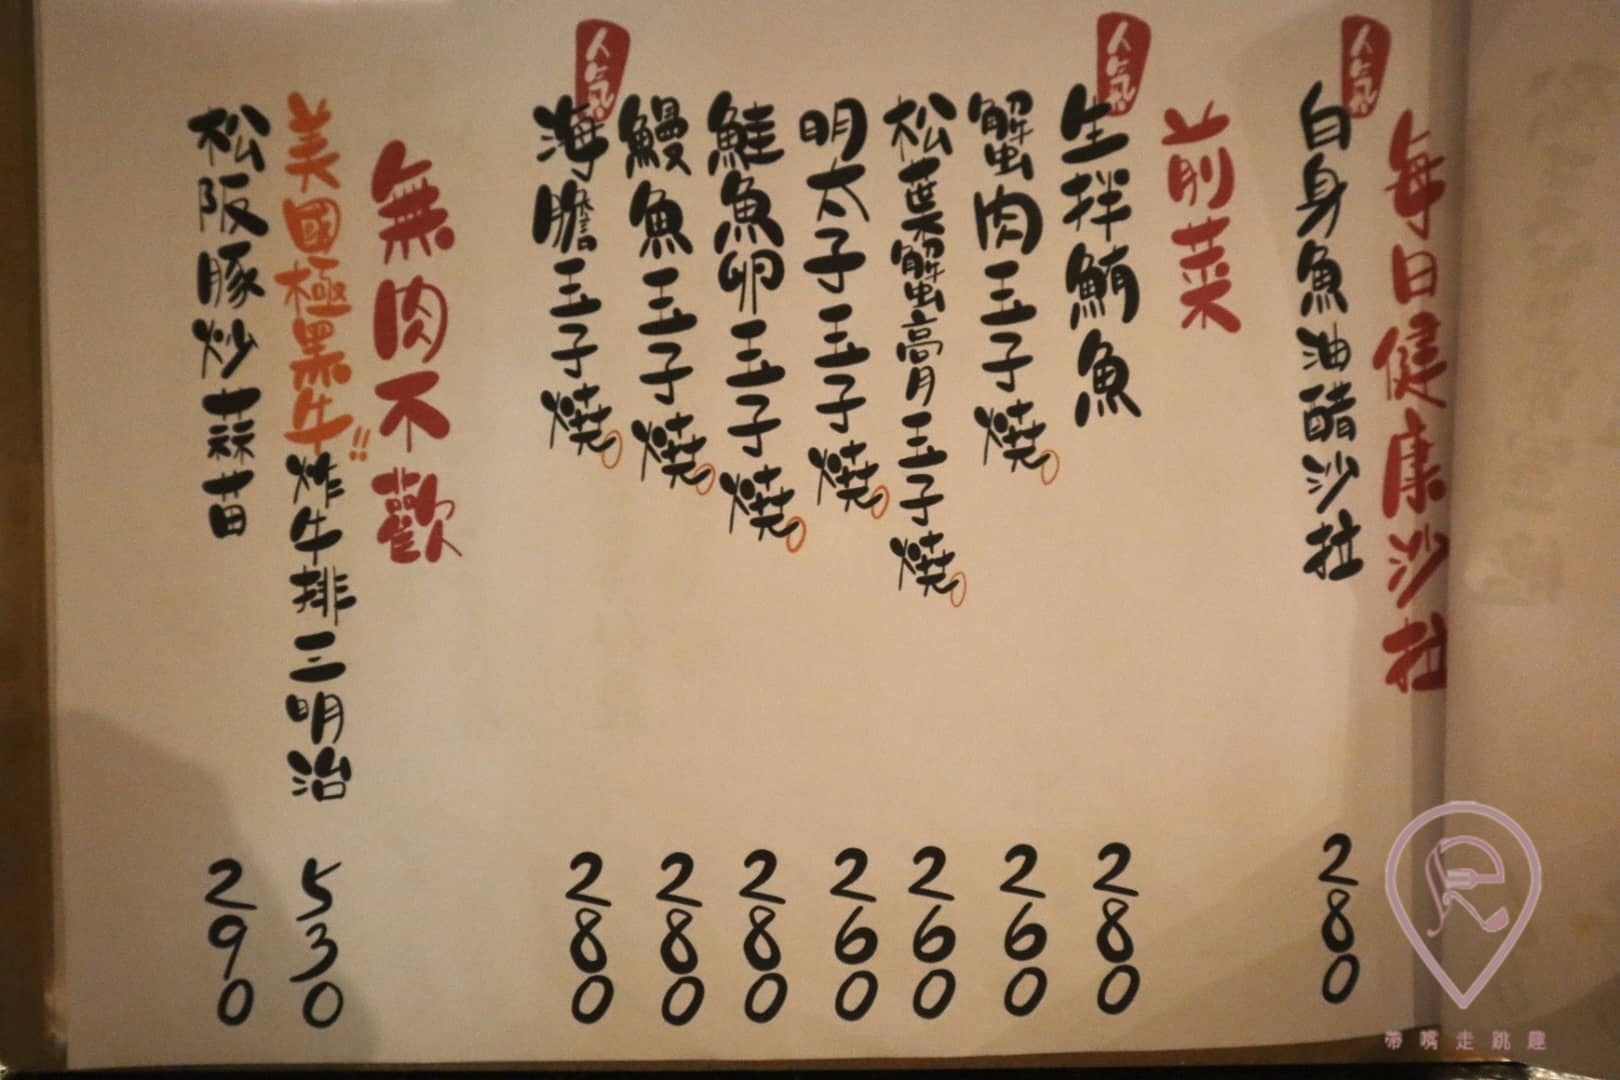 每日健康沙拉
人氣
白身魚油醋沙拉 280
前菜
人氣
生拌鮪魚 280
蟹肉玉子燒。 260
松葉蟹膏玉子燒。 260
明太子玉子燒。 260
鮭魚卵玉子燒。 280
鰻魚玉子燒。 280
人氣
海膽玉子燒。 280
無肉不歡
美國極黑牛!!炸牛排三明治 530
松阪豚炒蒜苗 290
帶嘴走跳趣